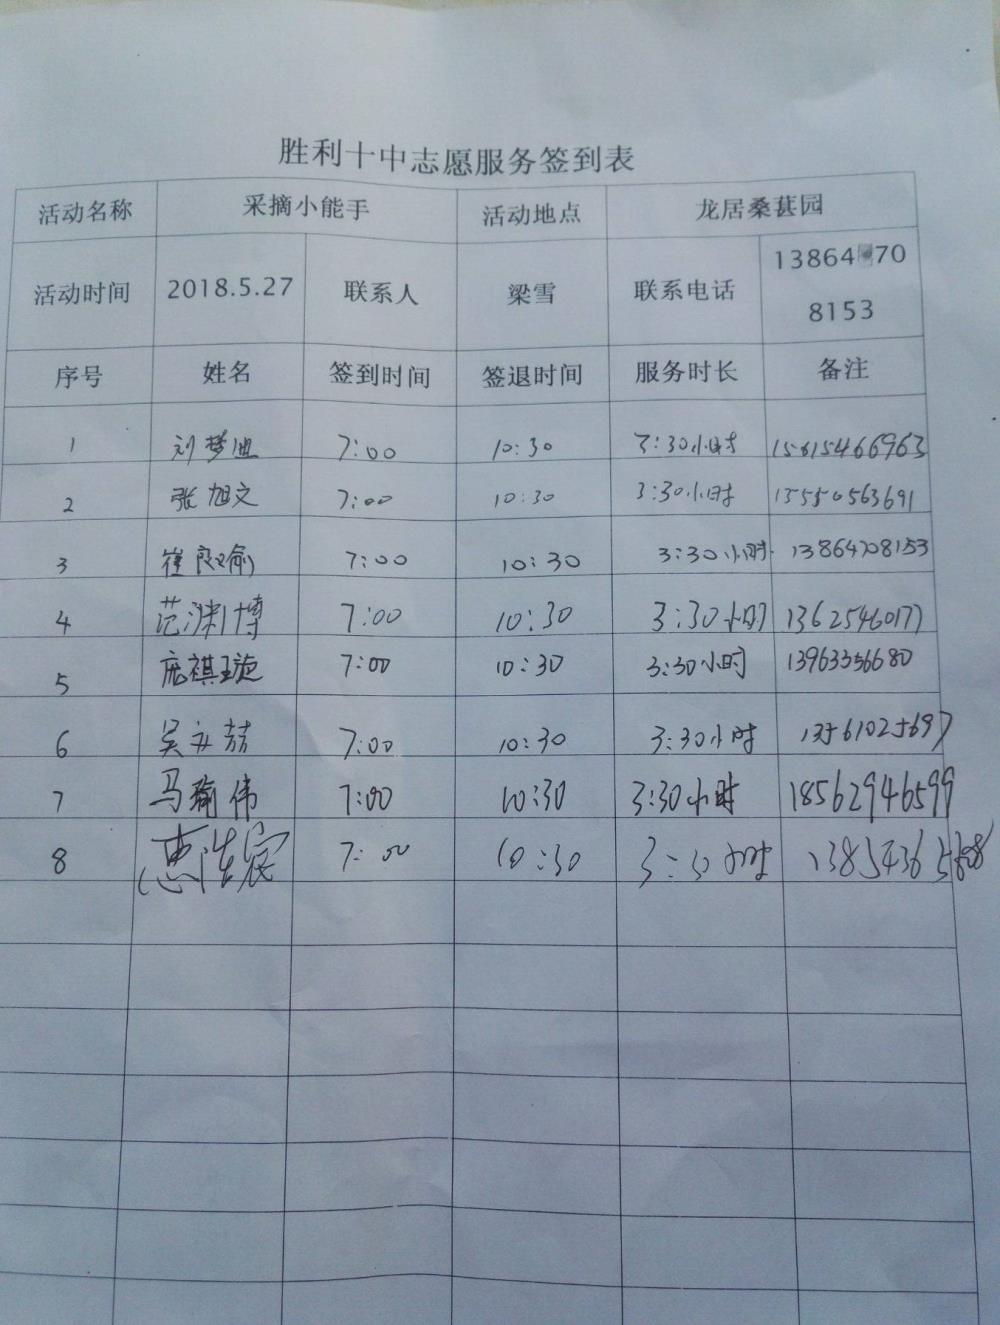 胜利十中志愿服务签到表
活动名称 采摘小能手 活动地点 龙居桑葚园
活动时间 2018.5.27 联系人 梁雪 联系电话 13864 70
8153
序号 姓名 签到时间 签退时间 服务时长 备注
1 刘梦迪 7:00 10:30 3:30小时 15615466963
2 张旭文 7:00 10:30 3:30小时 13550563691
3 崔 7:00 10:30 3:30小时 13864708153
4 范渊博 7:00 10:30 3:30小时 13625460177
5 庞祺璇 7:00 10:30 3:30小时 13963356680
6 吴 喆 7:00 10:30 3:30小时 13561025697
7 马瑜伟 7:00 10:30 3:30小时 18562946599
8 惠 宸 7:00 10:30 3:30小时